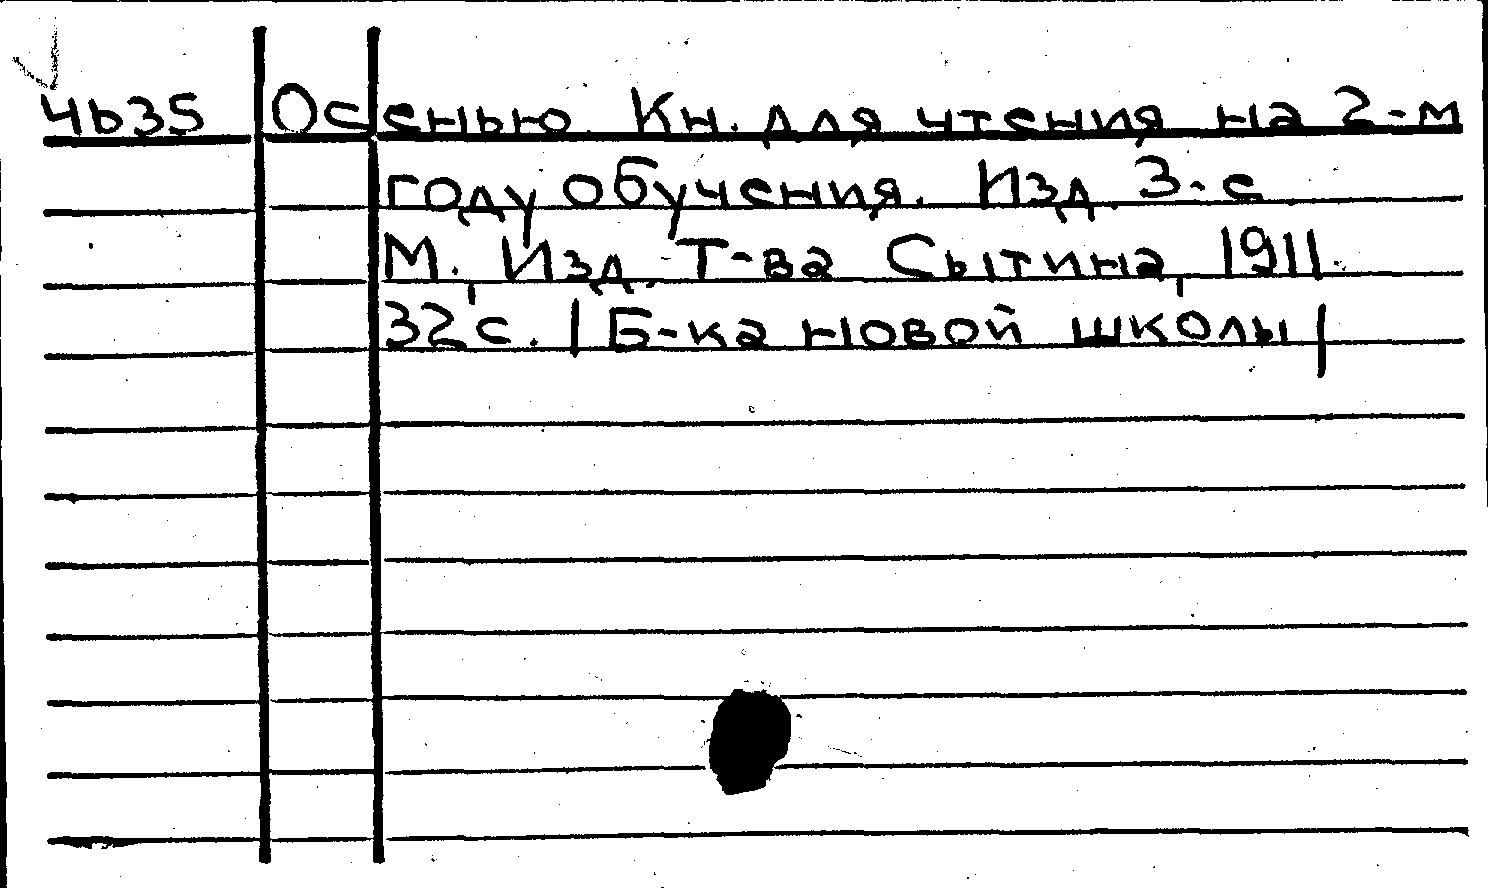 4b35 Осенью. Кн. для чтения на 2-м
году обучения. Изд. 3-е
М. Изд. Т-ва Сытина, 1911.
32 с. |Б-ка новой школы|